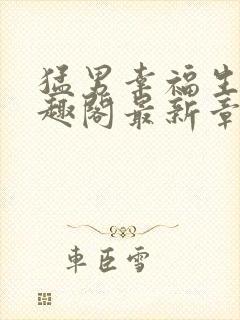 猛男幸福生
趣阁最新章
车臣雪